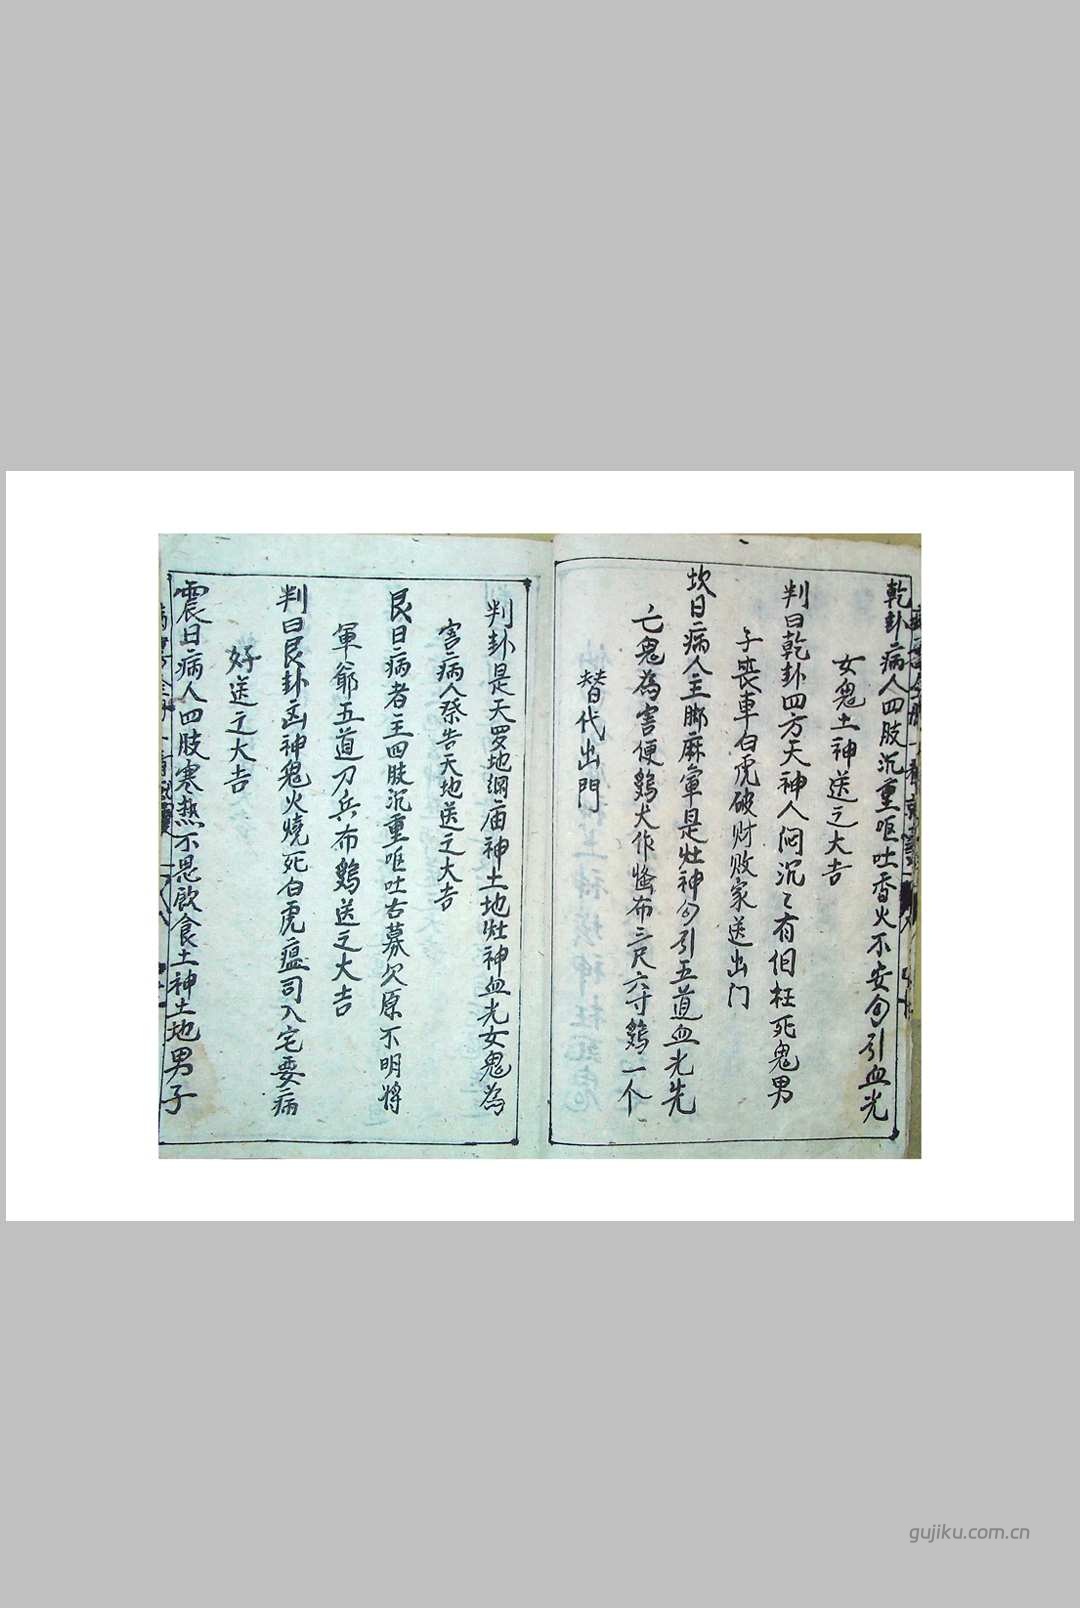 乾卦病人四肢沉重呕吐香火不安勾引血光
女鬼土神送之大吉
判曰乾卦四方天神人闷沉々有伯枉死鬼男
子丧車白虎破财败家送出门
坎日病人主脚麻軍是灶神勾引五道血光先
亡鬼為害便鷄犬作恠布三尺六寸鷄一个
替代出門
判卦是天罗地綱庙神土地灶神血光女鬼為
害病人祭告天地送之大吉
艮日病者主四肢沉重呕吐古墓欠原不明将
軍爺五道刀兵布鷄送之大吉
判曰艮卦凶神鬼火燒死白虎瘟司入宅要病
好送之大吉
震日病人四肢寒热不思飲食土神土地男子
gujiku.com.cn